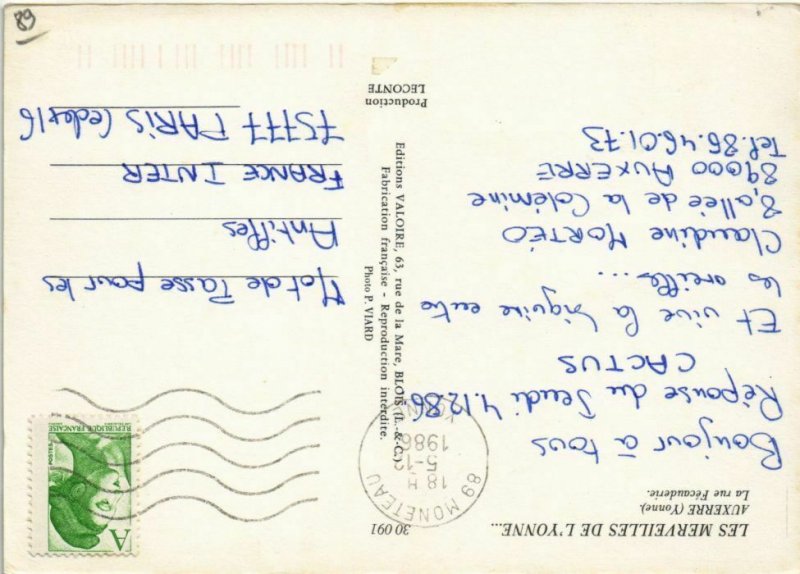 LES MERVEILLES DE L'YONNE...
AUXERRE (Yonne).
La rue Fécauderie.
30 091
Bonjour à tous
Réponse du Jeudi 4.12.86
CACTUS
Et vive la biguine entre
les oreilles...
Claudine MORTÉO
8, allée de la Colémine
89000 AUXERRE
Tel. 86.46.01.73
89 MONETEAU
18 H
5-12
1986
YONNE
A
REPUBLIQUE FRANÇAISE
POSTES
Mot de Passe pour les
Antilles
FRANCE INTER
75777 PARIS Cedex 16
Editions VALOIRE, 63, rue de la Mare, BLOIS (L.-&-C.)
Fabrication française - Reproduction interdite.
Photo P. VIARD
Production
LECONTE
89